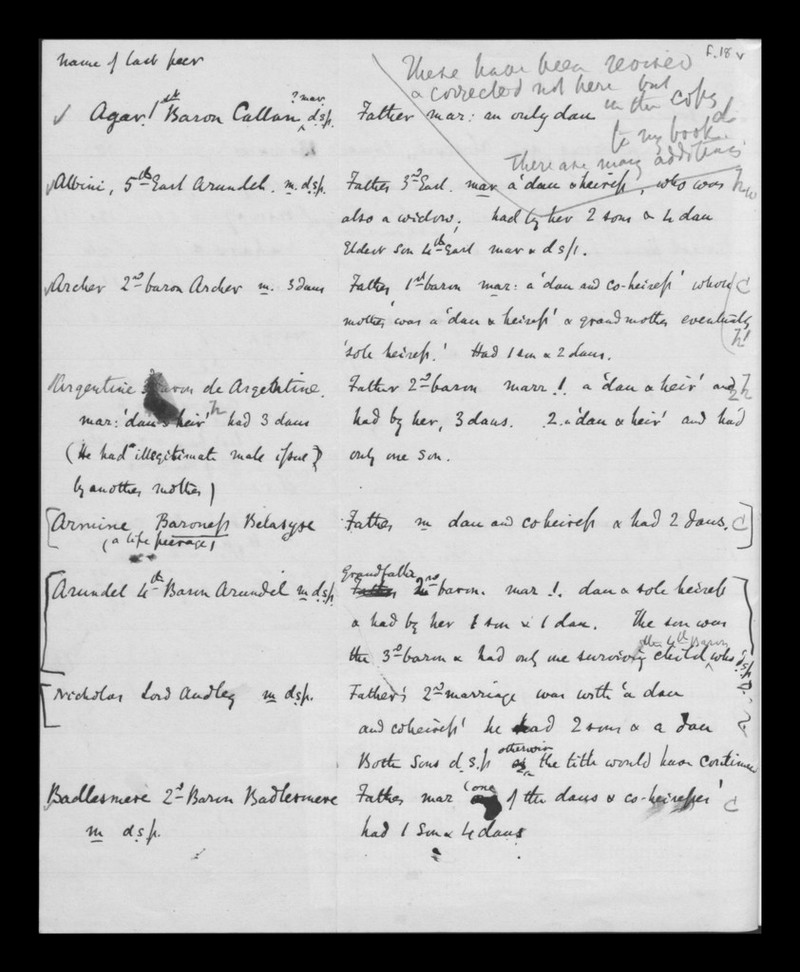 f. 18 v
Name of last peer
These have been revised
& corrected not here but
in the copy
to my book.
There are many additions
✓ Agar 1st Baron Callan ? mar d.s.p.
Father mar: an only dau
✓ Albini, 5th Earl Arundel. m. d.s.p.
Father 3rd Earl. mar a 'dau & heiress', who was h w
also a widow; had by her 2 sons & 4 dau
Eldest son 4th Earl mar & d s p.
✓ Archer 2nd baron Archer m. 3 daus
Father 1st baron mar: a 'dau and co-heiress' whose C
mother was a 'dau & heiress' & grandmother eventually
'sole heiress.' Had 1 son & 2 daus. h
Argentine Baron de Argentine.
Father 2nd baron marr 1. a 'dau & heir' and 2 h
mar: 'dau & heir' h had 3 daus
had by her, 3 daus. 2. a 'dau & heir' and had
(He had illegitimate male issue
only one son.
by another mother)
[Armine Baroness Belasyse
Father m dau and coheiress & had 2 daus. C]
(a life peerage)
[Arundel 4th Baron Arundel m d.s.p.
Grandfather 2nd baron. mar 1. dau & sole heiress
& had by her 1 son & 1 dau. The son was
the 4th Baron
the 3rd baron & had only one surviving child, who d.s.p
[Nicholas Lord Audley m d.s.p.
Father's 2nd marriage was with 'a dau
and coheiress' he had 2 sons & a dau
Both sons d.s.p otherwise the title would have continued
Badlesmere 2nd Baron Badlesmere
Father mar (one of the daus & co-heiresses' C
m d.s.p.
had 1 son & 4 daus